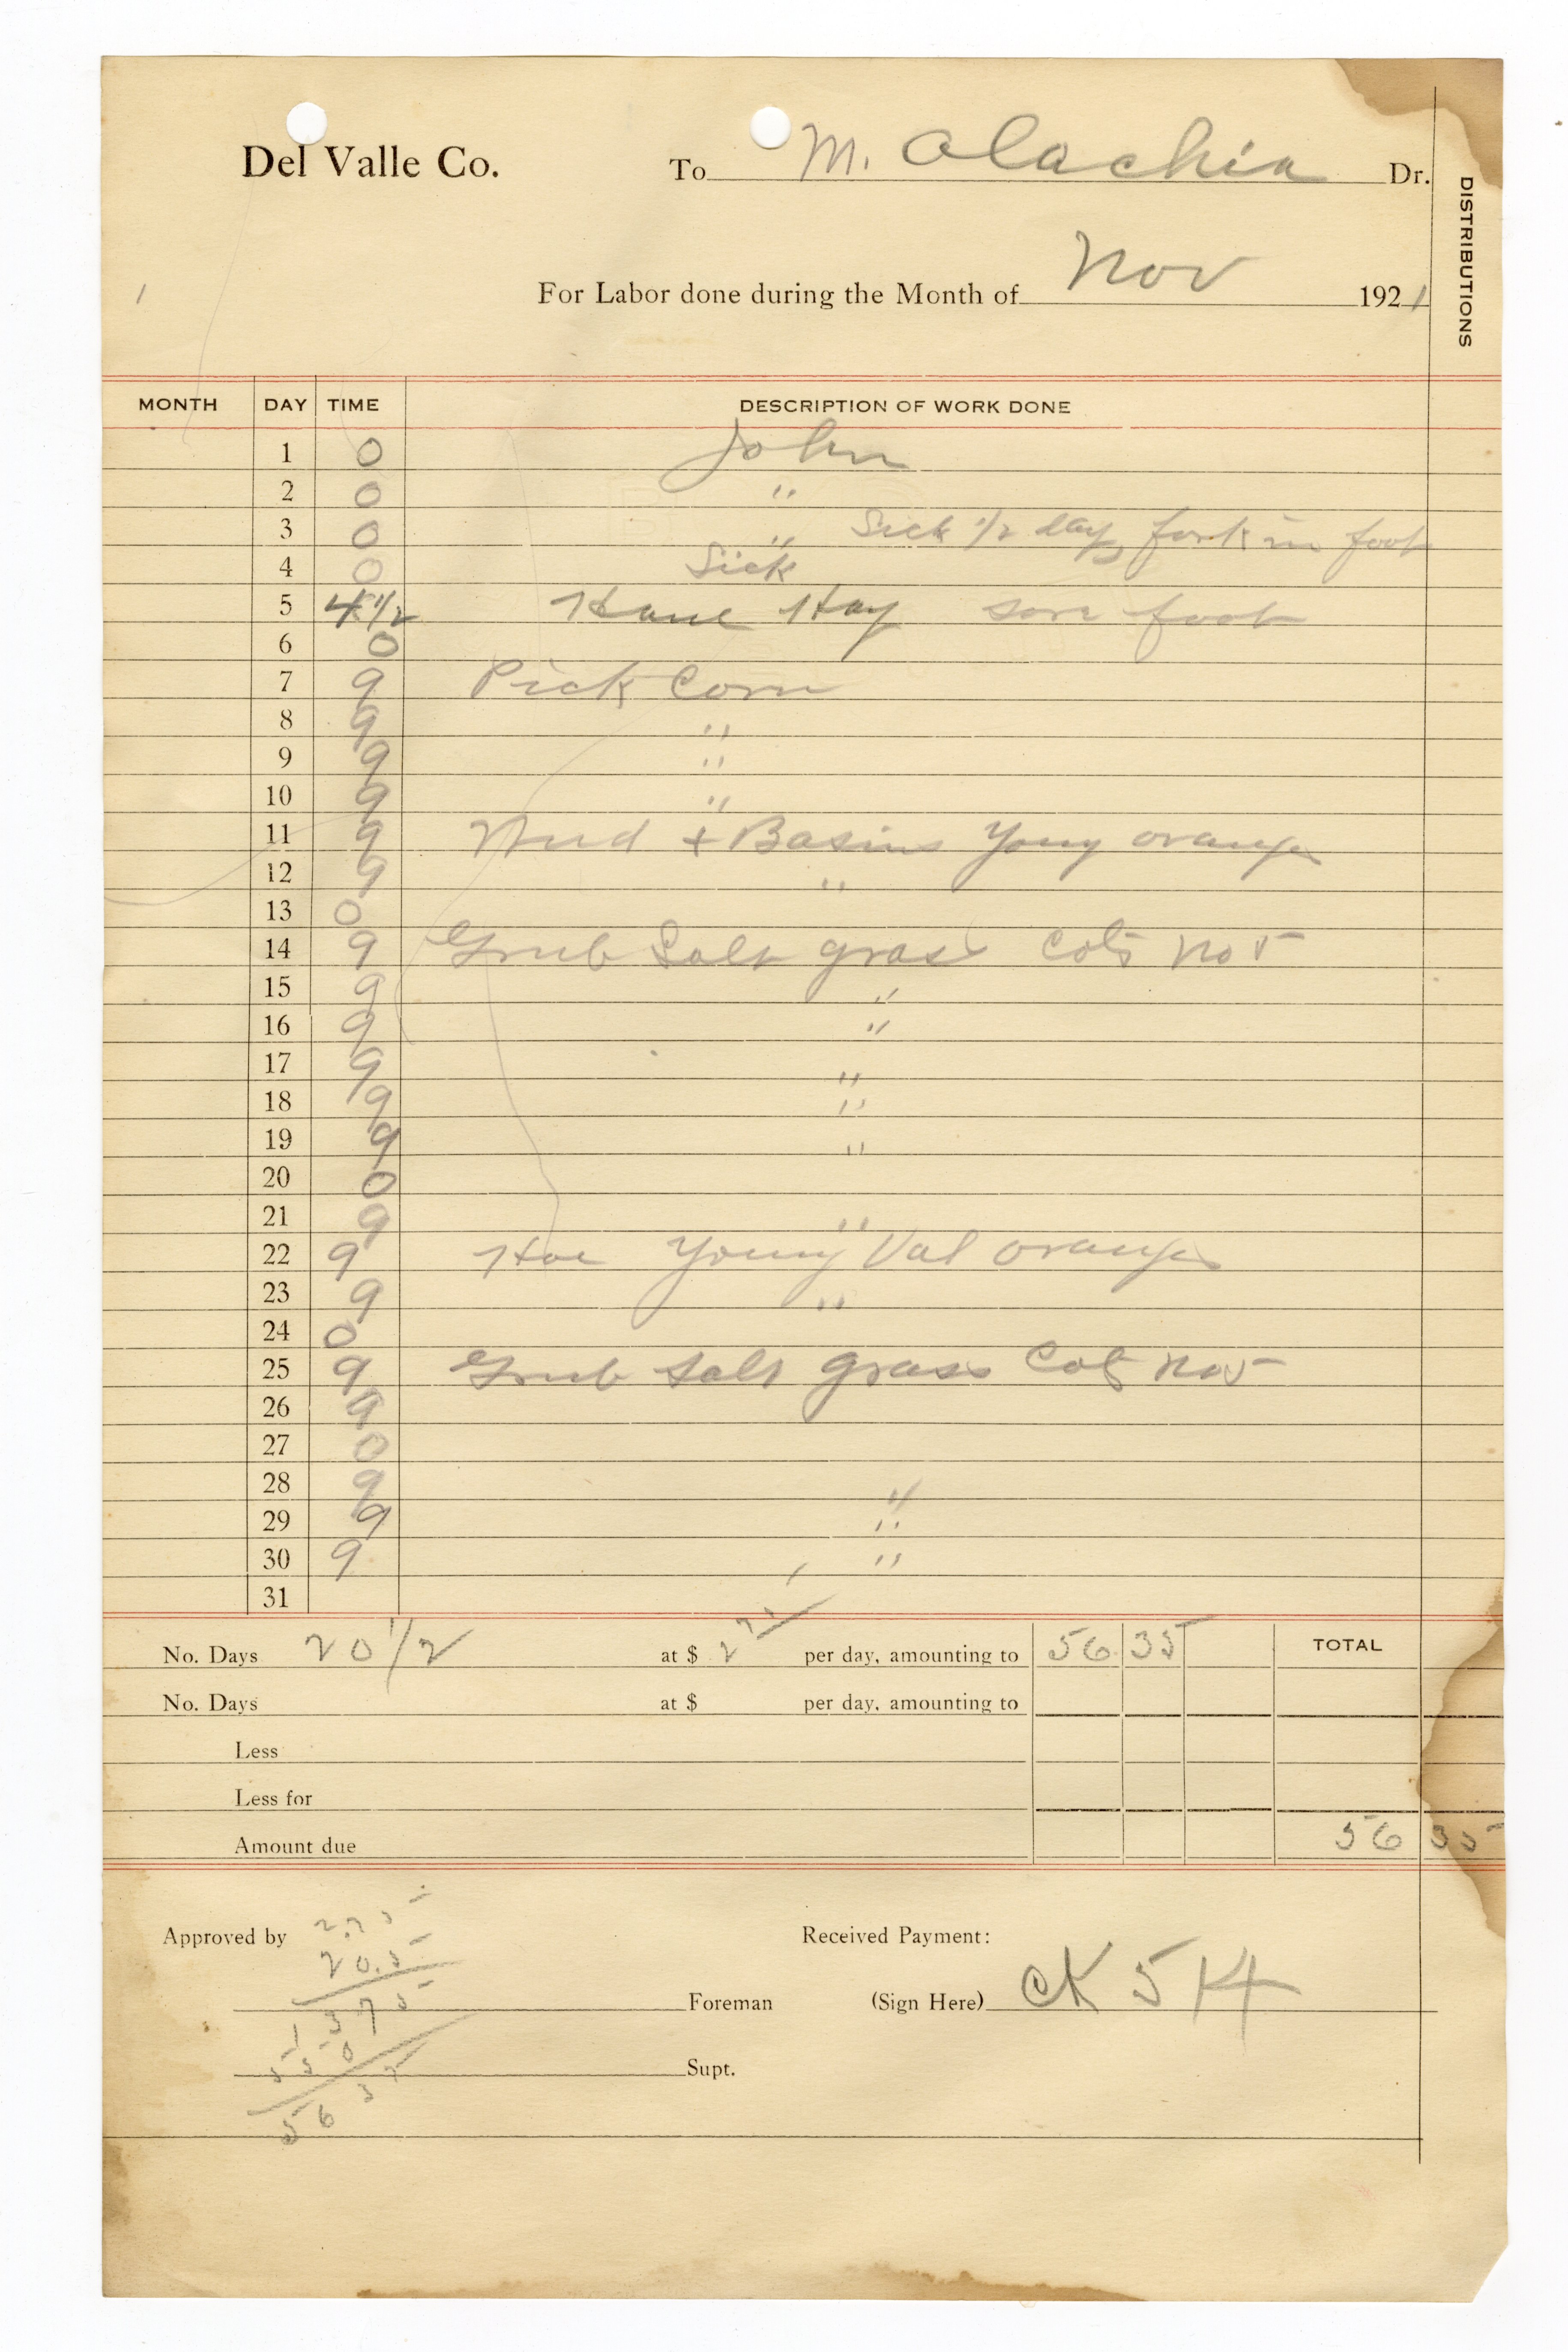 Del Valle Co. To M. Olachia Dr.
DISTRIBUTIONS
For Labor done during the Month of Nov 1921
MONTH DAY TIME DESCRIPTION OF WORK DONE
1 0 John
2 0 "
3 0 " Sick 1/2 day fork in foot
4 0 Sick
5 4 1/2 Haul Hay sore foot
6 0
7 9 Pick Corn
8 9 "
9 9 "
10 9 "
11 9 Weed + Basins Young oranges
12 9 "
13 0
14 9 Grub Salt grass Cots No 5
15 9 "
16 9 "
17 9 "
18 9 "
19 9 "
20 0
21 9 "
22 9 Hoe Young Val oranges
23 9 "
24 0
25 9 Grub Salt grass Cots No 5
26 9
27 0
28 9 "
29 9 "
30 9 "
31
No. Days 20 1/2 at $ 2 75 per day, amounting to 56 35 TOTAL
No. Days at $ per day, amounting to
Less
Less for
Amount due 56 35
Approved by 2.75 Received Payment:
20.5
Foreman (Sign Here) CK 514
1375
550
Supt.
5637